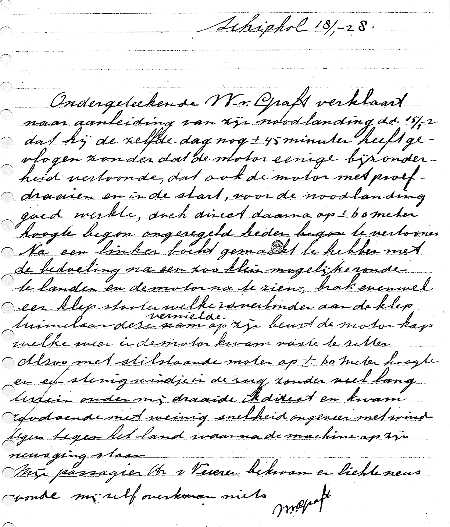 Schiphol 18/1-28.
Ondergeteekende W. v. Graft verklaart
naar aanleiding van zijn noodlanding dd. 15/1-2
dat hij de zelfde dag nog ± 45 minuten heeft ge-
vlogen zonder dat de motor eenige bijzonder-
heid vertoonde, dat ook de motor met proef-
draaien en in de start, voor de noodlanding
goed werkte, doch direct daarna op ± 60 meter
hoogte begon ongeregeldheden begon te vertoonen
Na een linker bocht gemaakt te hebben met
de bedoeling na een zoo klein mogelijke ronde
te landen en de motor na te zien, brak evenwel
een klep stooter welke verbinder aan de klep
tuimelaar deze op zijn beurt de motor kap
vernielde
welke weer in de motor kwam vast te zitten
Alsoo met stilstaande motor op ± 60 meter hoogte
en een stevig windje in de rug, zonder
terrein onder mij draaide ik direct en kwam
zoodoende met weinig snelheid ongeveer met wind
tegen het land waarna de machine op zijn
neus ging staan
Mijn passagier Dhr. v bekwam een lichte neus
wonde mij zelf overkwam niets
W v Graft